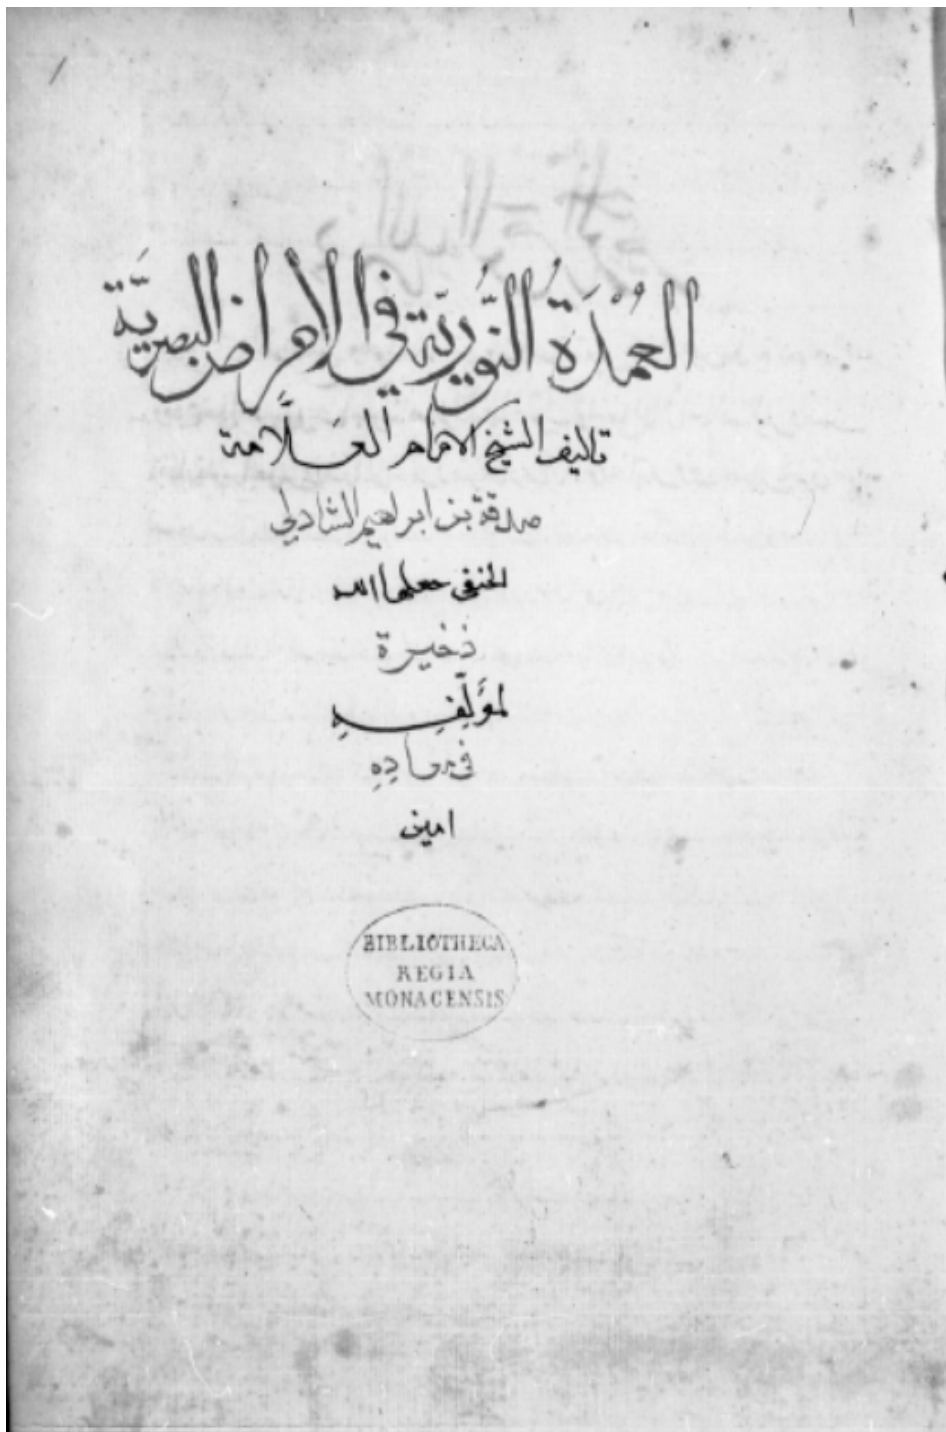 العُمْدَةُ النُّورِيّة في الامراض البصريَّة
تاليف الشيخ الامام العَلَّامة
صدقة بن ابراهيم الشاذلي
الحنفي جعلها الله
ذخيرة
لمؤَلِّفِهِ
في معادِهِ
امين
BIBLIOTHECA
REGIA
MONACENSIS